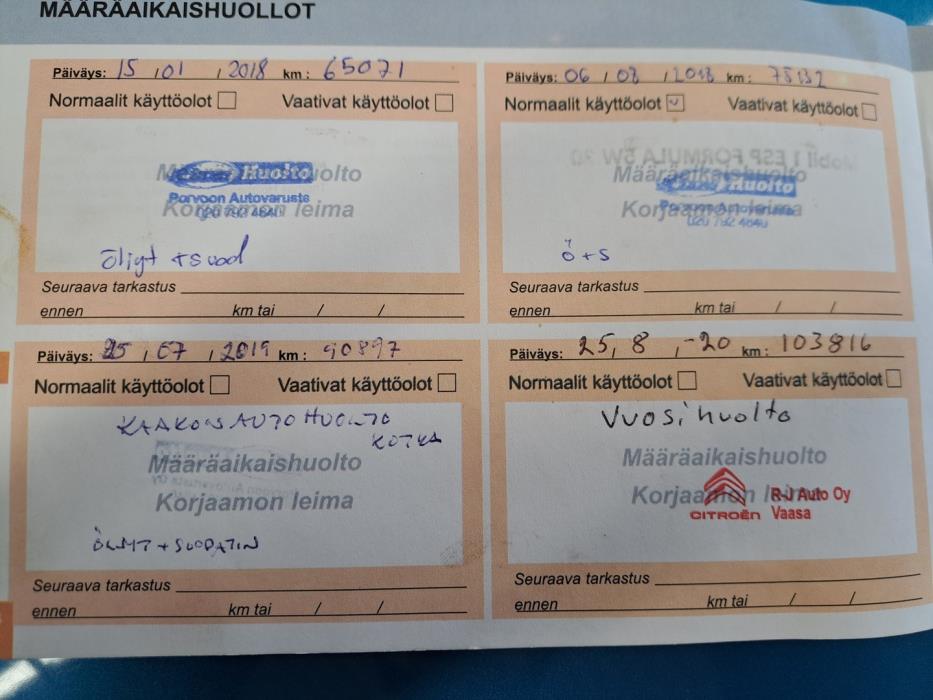 MÄÄRÄAIKAISHUOLLOT
Päiväys: 15 / 01 / 2018 km: 65071
Normaalit käyttöolot Vaativat käyttöolot
Huolto
Määräaikaishuolto
Porvoon Autovaruste
Korjaamon leima
020 792 4640
öljyt + suod
Seuraava tarkastus
ennen km tai / /
Päiväys: 06 / 08 / 2018 km: 78132
Normaalit käyttöolot Vaativat käyttöolot
Mobil 1 ESP FORMULA 5W 30
Määräaikaishuolto
Huolto
Porvoon Autovaruste
Korjaamon leima
020 792 4640
ö + s
Seuraava tarkastus
ennen km tai / /
Päiväys: 25 / 07 / 2019 km: 90897
Normaalit käyttöolot Vaativat käyttöolot
KAAKON AUTOHUOLTO
KOTKA
Määräaikaishuolto
Korjaamon leima
ÖLJYT + SUODATIN
Seuraava tarkastus
ennen km tai / /
Päiväys: 25, 8, -20 km: 103816
Normaalit käyttöolot Vaativat käyttöolot
Vuosihuolto
Määräaikaishuolto
Korjaamon leima
R-J Auto Oy
CITROËN Vaasa
Seuraava tarkastus
ennen km tai / /